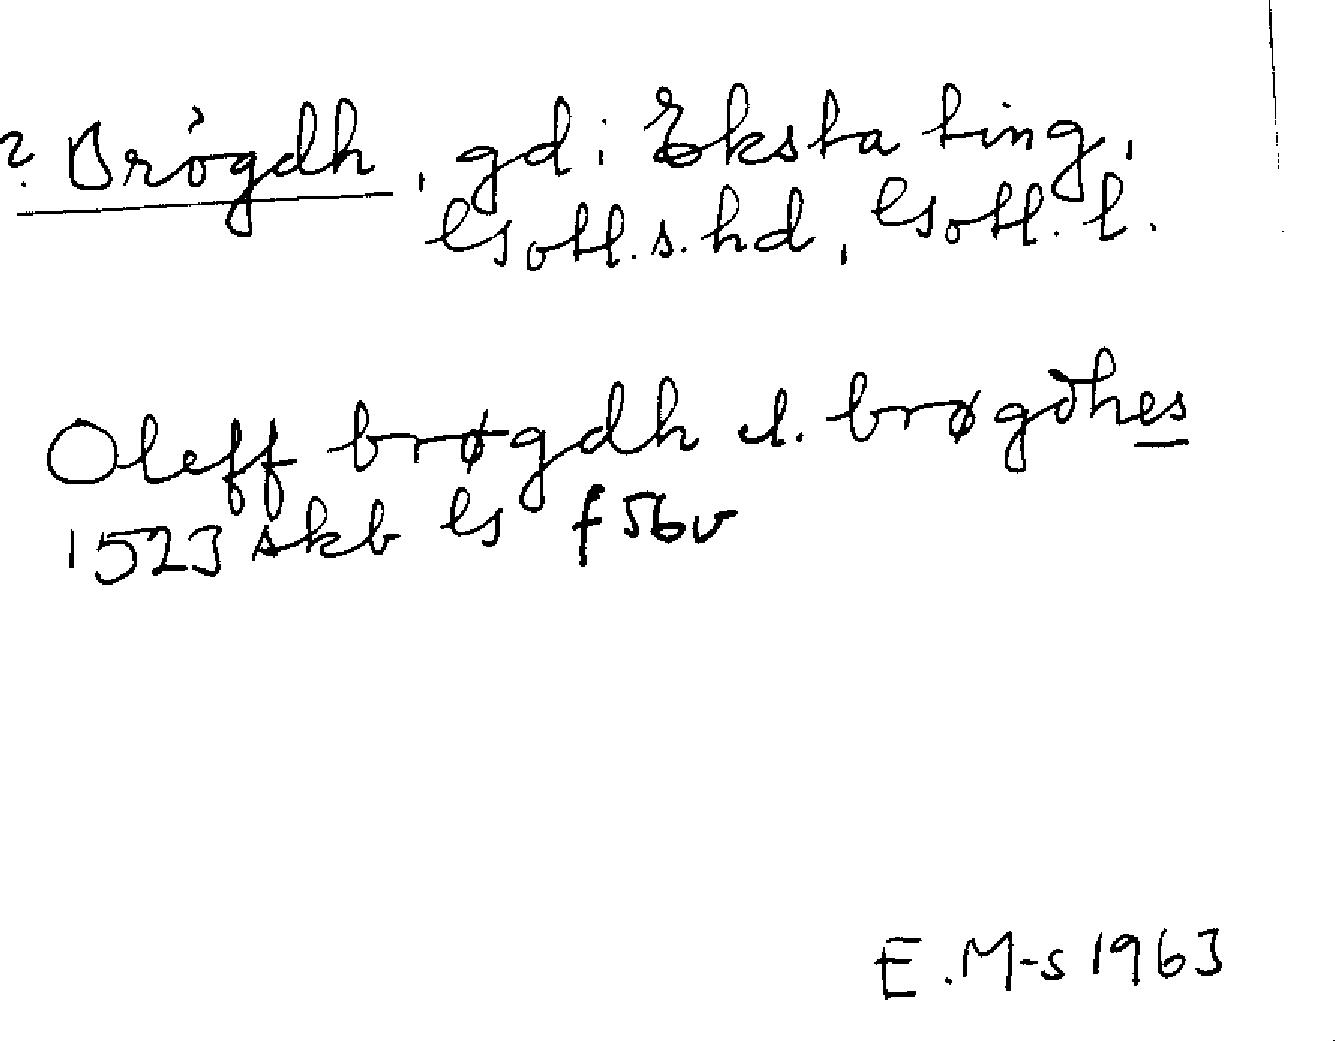 ? Brögdh, gd i Eksta ting,
Gotl. s. hd, Gotl. l.
Oleff brøgdh el. brøgdhes
1523 skb G f 56v
E. M-s 1963